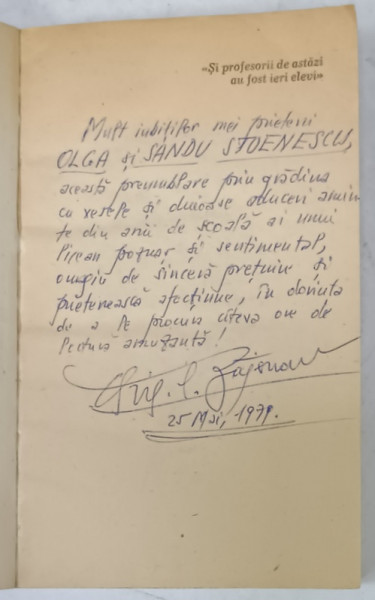 «Și profesorii de astăzi
au fost ieri elevi»
Mult iubiților mei prieteni
OLGA și SANDU STOENESCU,
această preumblare prin grădina
cu vesele și duioase aduceri amin
te din anii de școală ai unui
licean poznar și sentimental,
omagiu de sinceră prețuire și
prietenească afecțiune, în dorința
de a le procura câteva ore de
lectură amuzantă!
25 Mai, 1979.